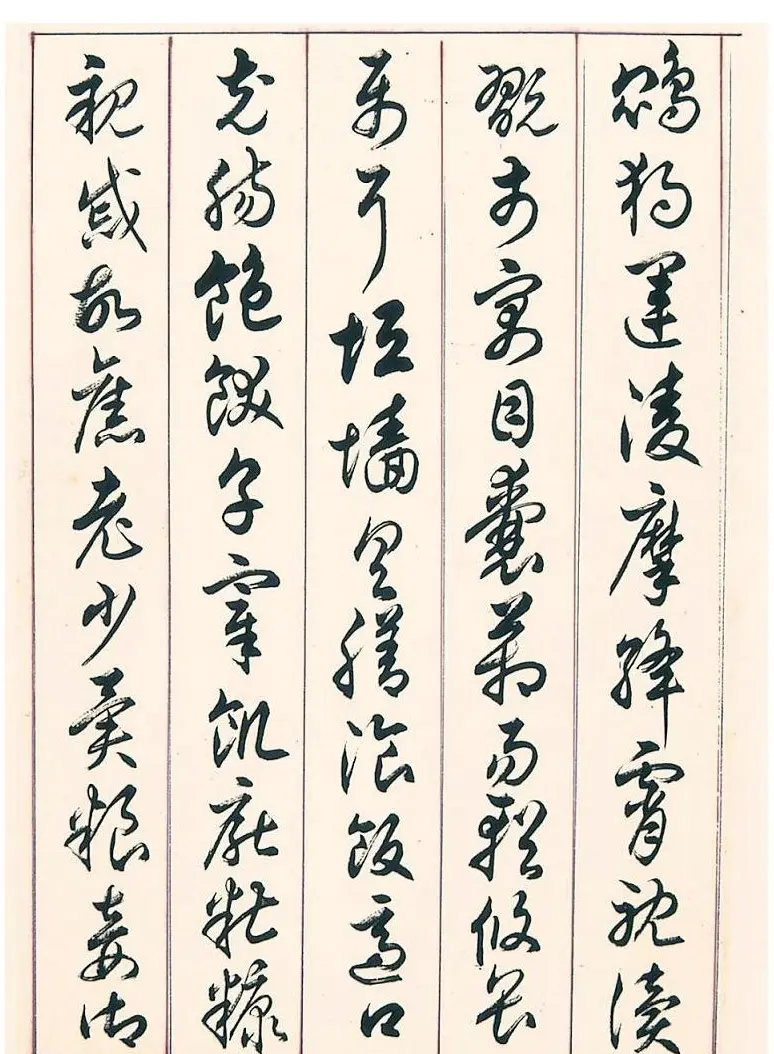 鵾獨運凌摩絳霄耽讀
翫市寓目囊箱易輶攸畏
屬耳垣墻具膳湌飯適口
充腸飽飫享宰飢厭糟糠
親戚故舊老少異粮妾御